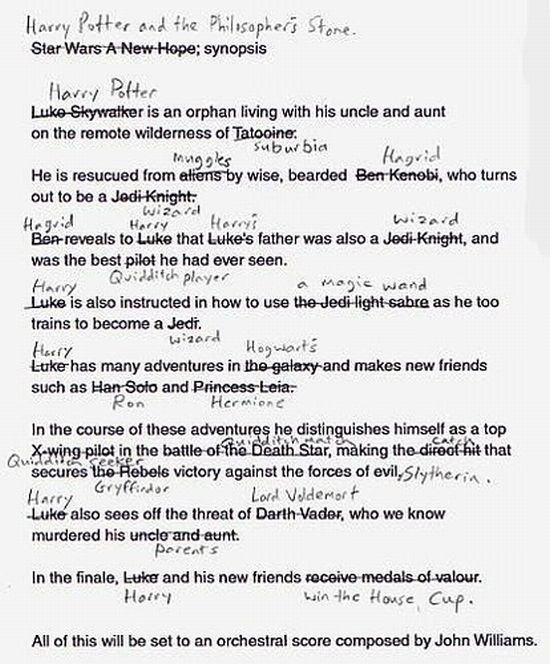 Harry Potter and the Philosopher's Stone.
Star Wars A New Hope; synopsis
Harry Potter
Luke Skywalker is an orphan living with his uncle and aunt
on the remote wilderness of Tatooine.
suburbia
Muggles Hagrid
He is resucued from aliens by wise, bearded Ben Kenobi, who turns
out to be a Jedi Knight.
wizard
Hagrid Harry Harry's wizard
Ben reveals to Luke that Luke's father was also a Jedi Knight, and
was the best pilot he had ever seen.
Quidditch player
Harry a magic wand
Luke is also instructed in how to use the Jedi light sabre as he too
trains to become a Jedi.
wizard
Harry Hogwarts
Luke has many adventures in the galaxy and makes new friends
such as Han Solo and Princess Leia.
Ron Hermione
In the course of these adventures he distinguishes himself as a top
Quidditch match catch
X-wing pilot in the battle of the Death Star, making the direct hit that
Quidditch seeker
secures the Rebels victory against the forces of evil, Slytherin.
Gryffindor
Harry Lord Voldemort
Luke also sees off the threat of Darth Vader, who we know
murdered his uncle and aunt.
parents
In the finale, Luke and his new friends receive medals of valour.
Harry win the House Cup.
All of this will be set to an orchestral score composed by John Williams.